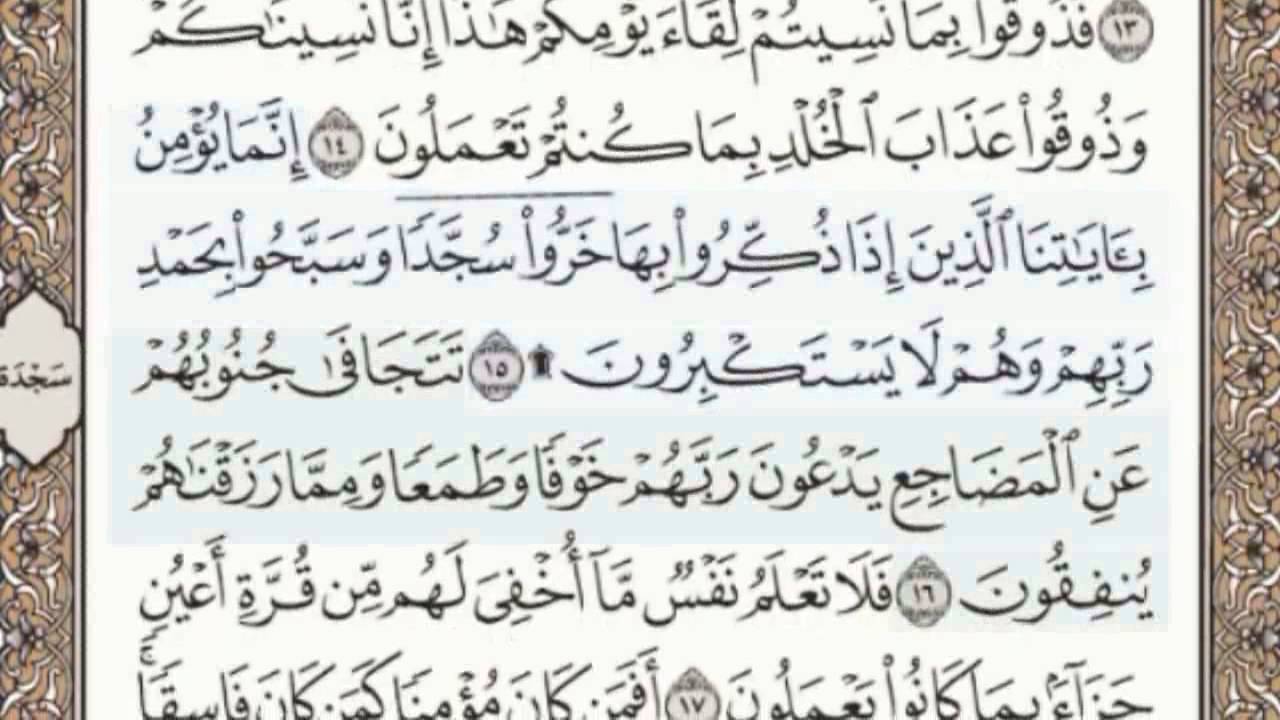 ١٣ فَذُوقُوا۟ بِمَا نَسِيتُمْ لِقَآءَ يَوْمِكُمْ هَٰذَآ إِنَّا نَسِينَٰكُمْ
وَذُوقُوا۟ عَذَابَ ٱلْخُلْدِ بِمَا كُنتُمْ تَعْمَلُونَ ١٤ إِنَّمَا يُؤْمِنُ
بِـَٔايَٰتِنَا ٱلَّذِينَ إِذَا ذُكِّرُوا۟ بِهَا خَرُّوا۟ سُجَّدًا وَسَبَّحُوا۟ بِحَمْدِ
رَبِّهِمْ وَهُمْ لَا يَسْتَكْبِرُونَ ۩ ١٥ تَتَجَافَىٰ جُنُوبُهُمْ
سَجْدَة
عَنِ ٱلْمَضَاجِعِ يَدْعُونَ رَبَّهُمْ خَوْفًا وَطَمَعًا وَمِمَّا رَزَقْنَٰهُمْ
يُنفِقُونَ ١٦ فَلَا تَعْلَمُ نَفْسٌ مَّآ أُخْفِىَ لَهُم مِّن قُرَّةِ أَعْيُنٍ
جَزَآءًۢ بِمَا كَانُوا۟ يَعْمَلُونَ ١٧ أَفَمَن كَانَ مُؤْمِنًا كَمَن كَانَ فَاسِقًا ۚ